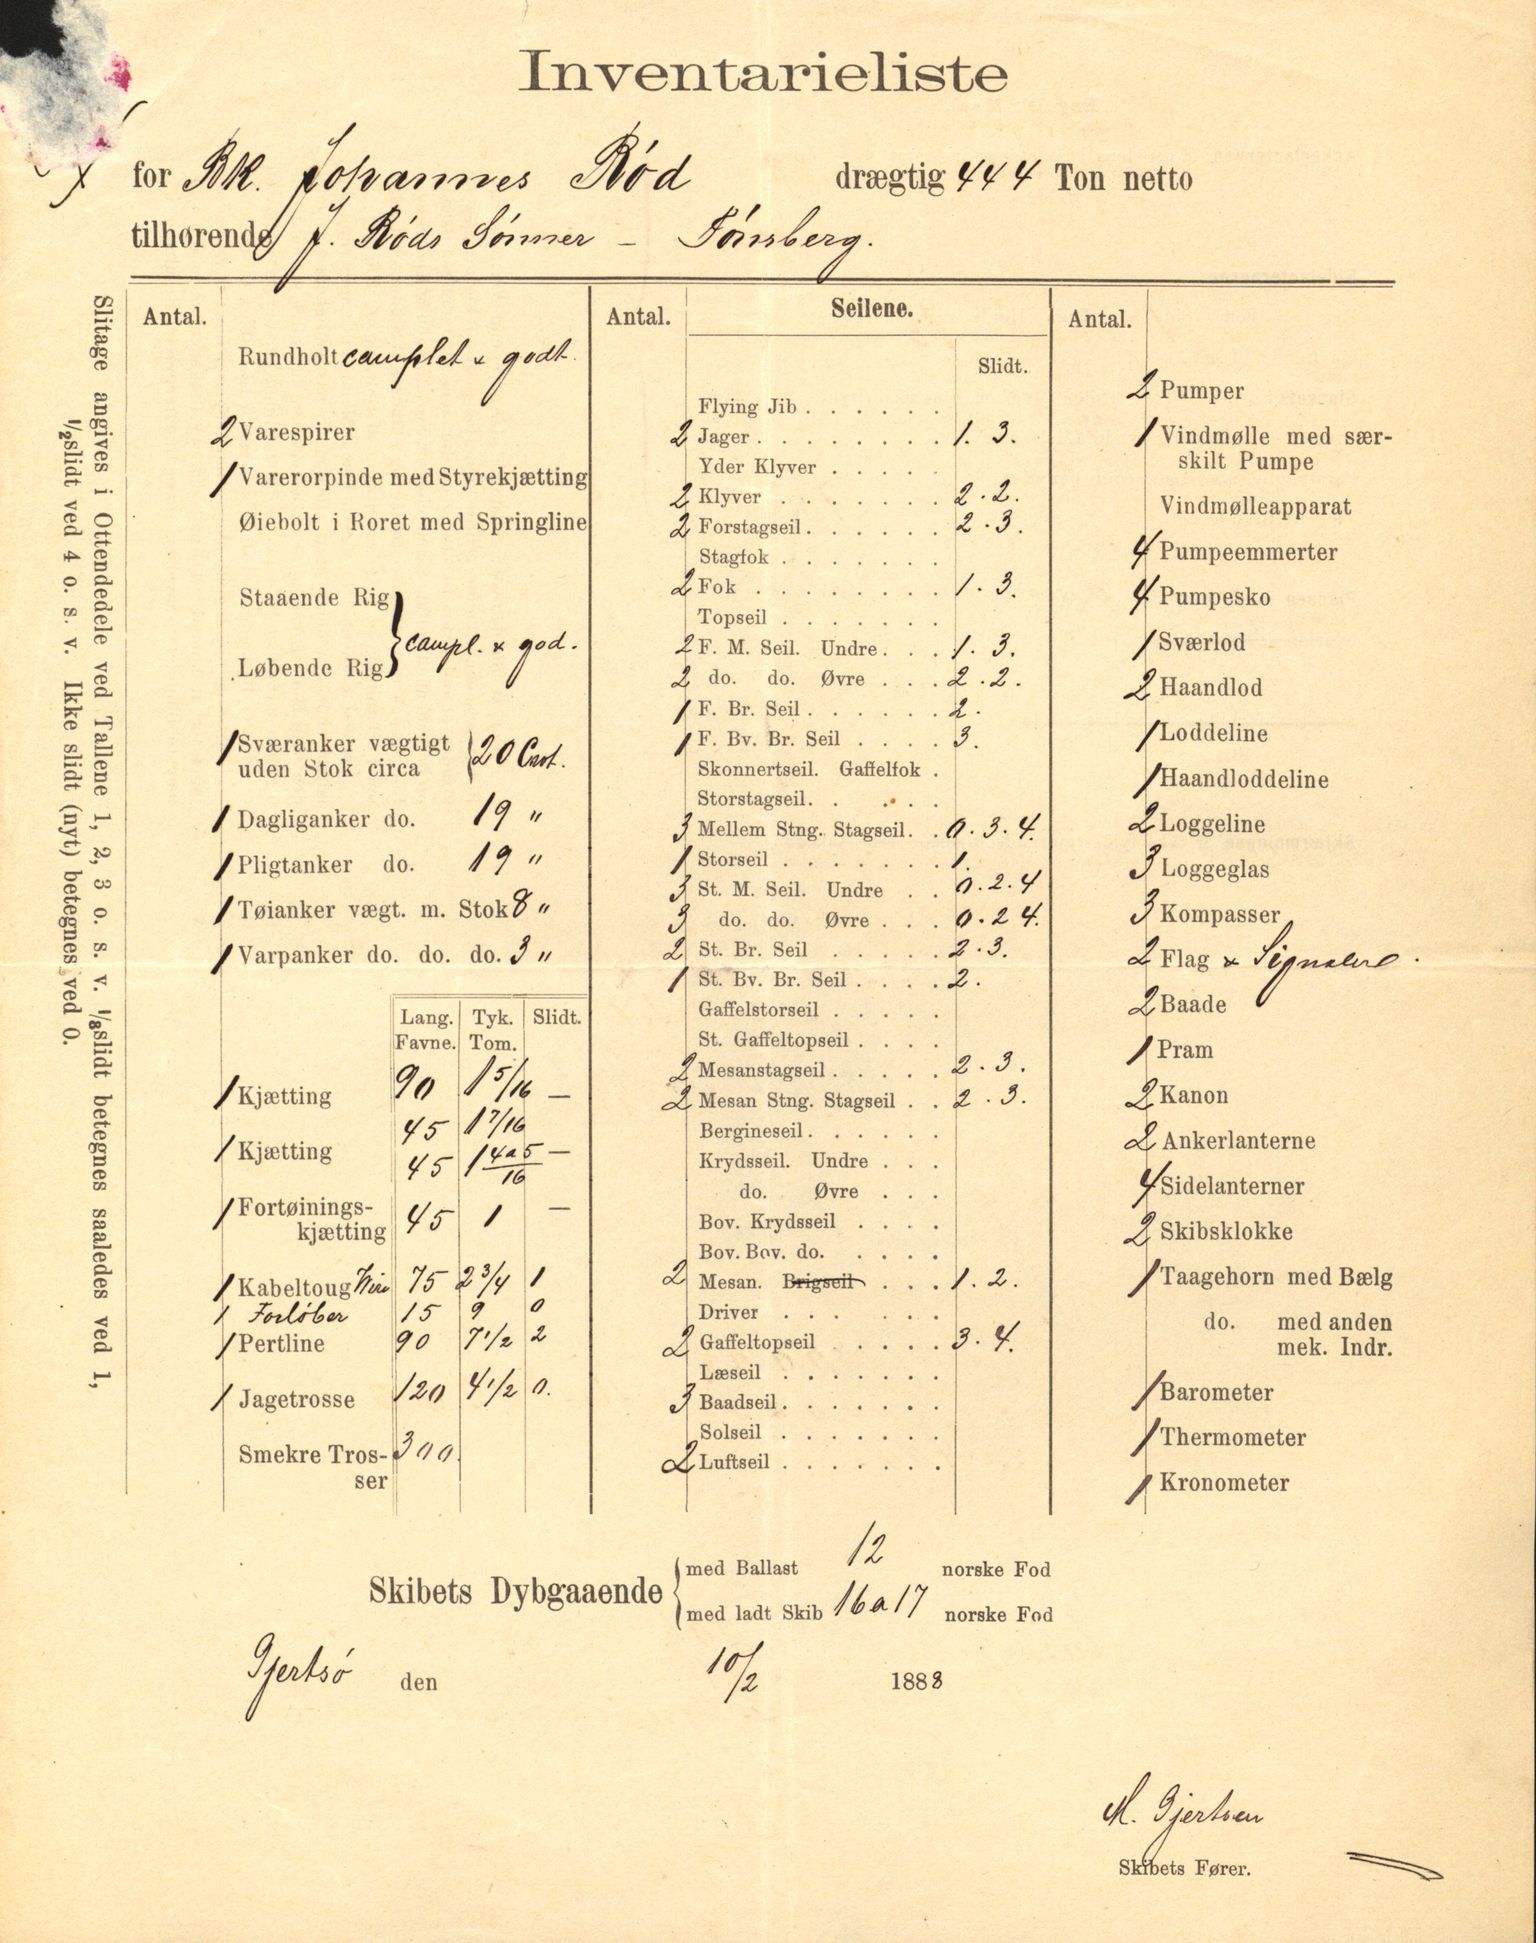 Inventarieliste
for Bk. Johannes Rød drægtig 444 Ton netto
tilhørende J. Røds Sønner – Tønsberg.
Slitage angives i Ottendedele ved Tallene 1, 2, 3 o. s. v. 1/8 slidt betegnes saaledes ved 1,
1/2 slidt ved 4 o. s. v. Ikke slidt (nyt) betegnes ved 0.
Antal.
Rundholt camplet & godt.
2 Varespirer
1 Varerorpinde med Styrekjætting
Øiebolt i Roret med Springline
Staaende Rig
} campl. & god.
Løbende Rig
1 Sværanker vægtigt
uden Stok circa { 20 Cwt.
1 Dagliganker do. 19 "
1 Pligtanker do. 19 "
1 Tøianker vægt. m. Stok 8 "
1 Varpanker do. do. do. 3 "
Lang. Tyk. Slidt.
Favne. Tom.
1 Kjætting 90 1 5/16 —
45 1 7/16
1 Kjætting 45 1 4a5/16 —
1 Fortøinings-
kjætting 45 1 —
1 Kabeltoug Wire 75 2 3/4 1
1 Forløber 15 9 0
1 Pertline 90 7 1/2 2
1 Jagetrosse 120 4 1/2 0.
Smekre Tros- 300.
ser
Antal. Seilene.
Slidt.
Flying Jib . . . . . .
2 Jager . . . . . . . . 1. 3.
Yder Klyver . . . . .
2 Klyver . . . . . . . 2. 2.
2 Forstagseil . . . . . . 2. 3.
Stagfok . . . . . . .
2 Fok . . . . . . . . 1. 3.
Topseil . . . . . . .
2 F. M. Seil. Undre . . . 1. 3.
2 do. do. Øvre . . . 2. 2.
1 F. Br. Seil . . . . . . 2.
1 F. Bv. Br. Seil . . . . 3.
Skonnertseil. Gaffelfok .
Storstagseil. . . . . .
3 Mellem Stng. Stagseil. . 0. 3. 4.
1 Storseil . . . . . . . 1.
3 St. M. Seil. Undre . . 0. 2. 4
3 do. do. Øvre . . . 0. 2 4.
2 St. Br. Seil . . . . . 2. 3.
1 St. Bv. Br. Seil . . . . 2.
Gaffelstorseil . . . . .
St. Gaffeltopseil . . . .
2 Mesanstagseil . . . . . 2. 3.
2 Mesan Stng. Stagseil . . 2. 3.
Bergineseil . . . . . .
Krydsseil. Undre . . .
do. Øvre . . .
Bov. Krydsseil . . . .
Bov. Bov. do. . . . .
2 Mesan. Brigseil . . . 1. 2.
Driver . . . . . .
2 Gaffeltopseil . . . . . 3. 4.
Læseil . . . . . . .
3 Baadseil . . . . . . .
Solseil . . . . . . .
2 Luftseil . . . . . . .
Antal.
2 Pumper
1 Vindmølle med sær-
skilt Pumpe
Vindmølleapparat
4 Pumpeemmerter
4 Pumpesko
1 Sværlod
2 Haandlod
1 Loddeline
1 Haandloddeline
2 Loggeline
3 Loggeglas
3 Kompasser
2 Flag & Signaler.
2 Baade
1 Pram
2 Kanon
2 Ankerlanterne
4 Sidelanterner
2 Skibsklokke
1 Taagehorn med Bælg
do. med anden
mek. Indr.
1 Barometer
1 Thermometer
1 Kronometer
Skibets Dybgaaende { med Ballast 12 norske Fod
med ladt Skib 16 a 17 norske Fod
Gjertsø den 10/2 1888
M. Gjertsen
Skibets Fører.